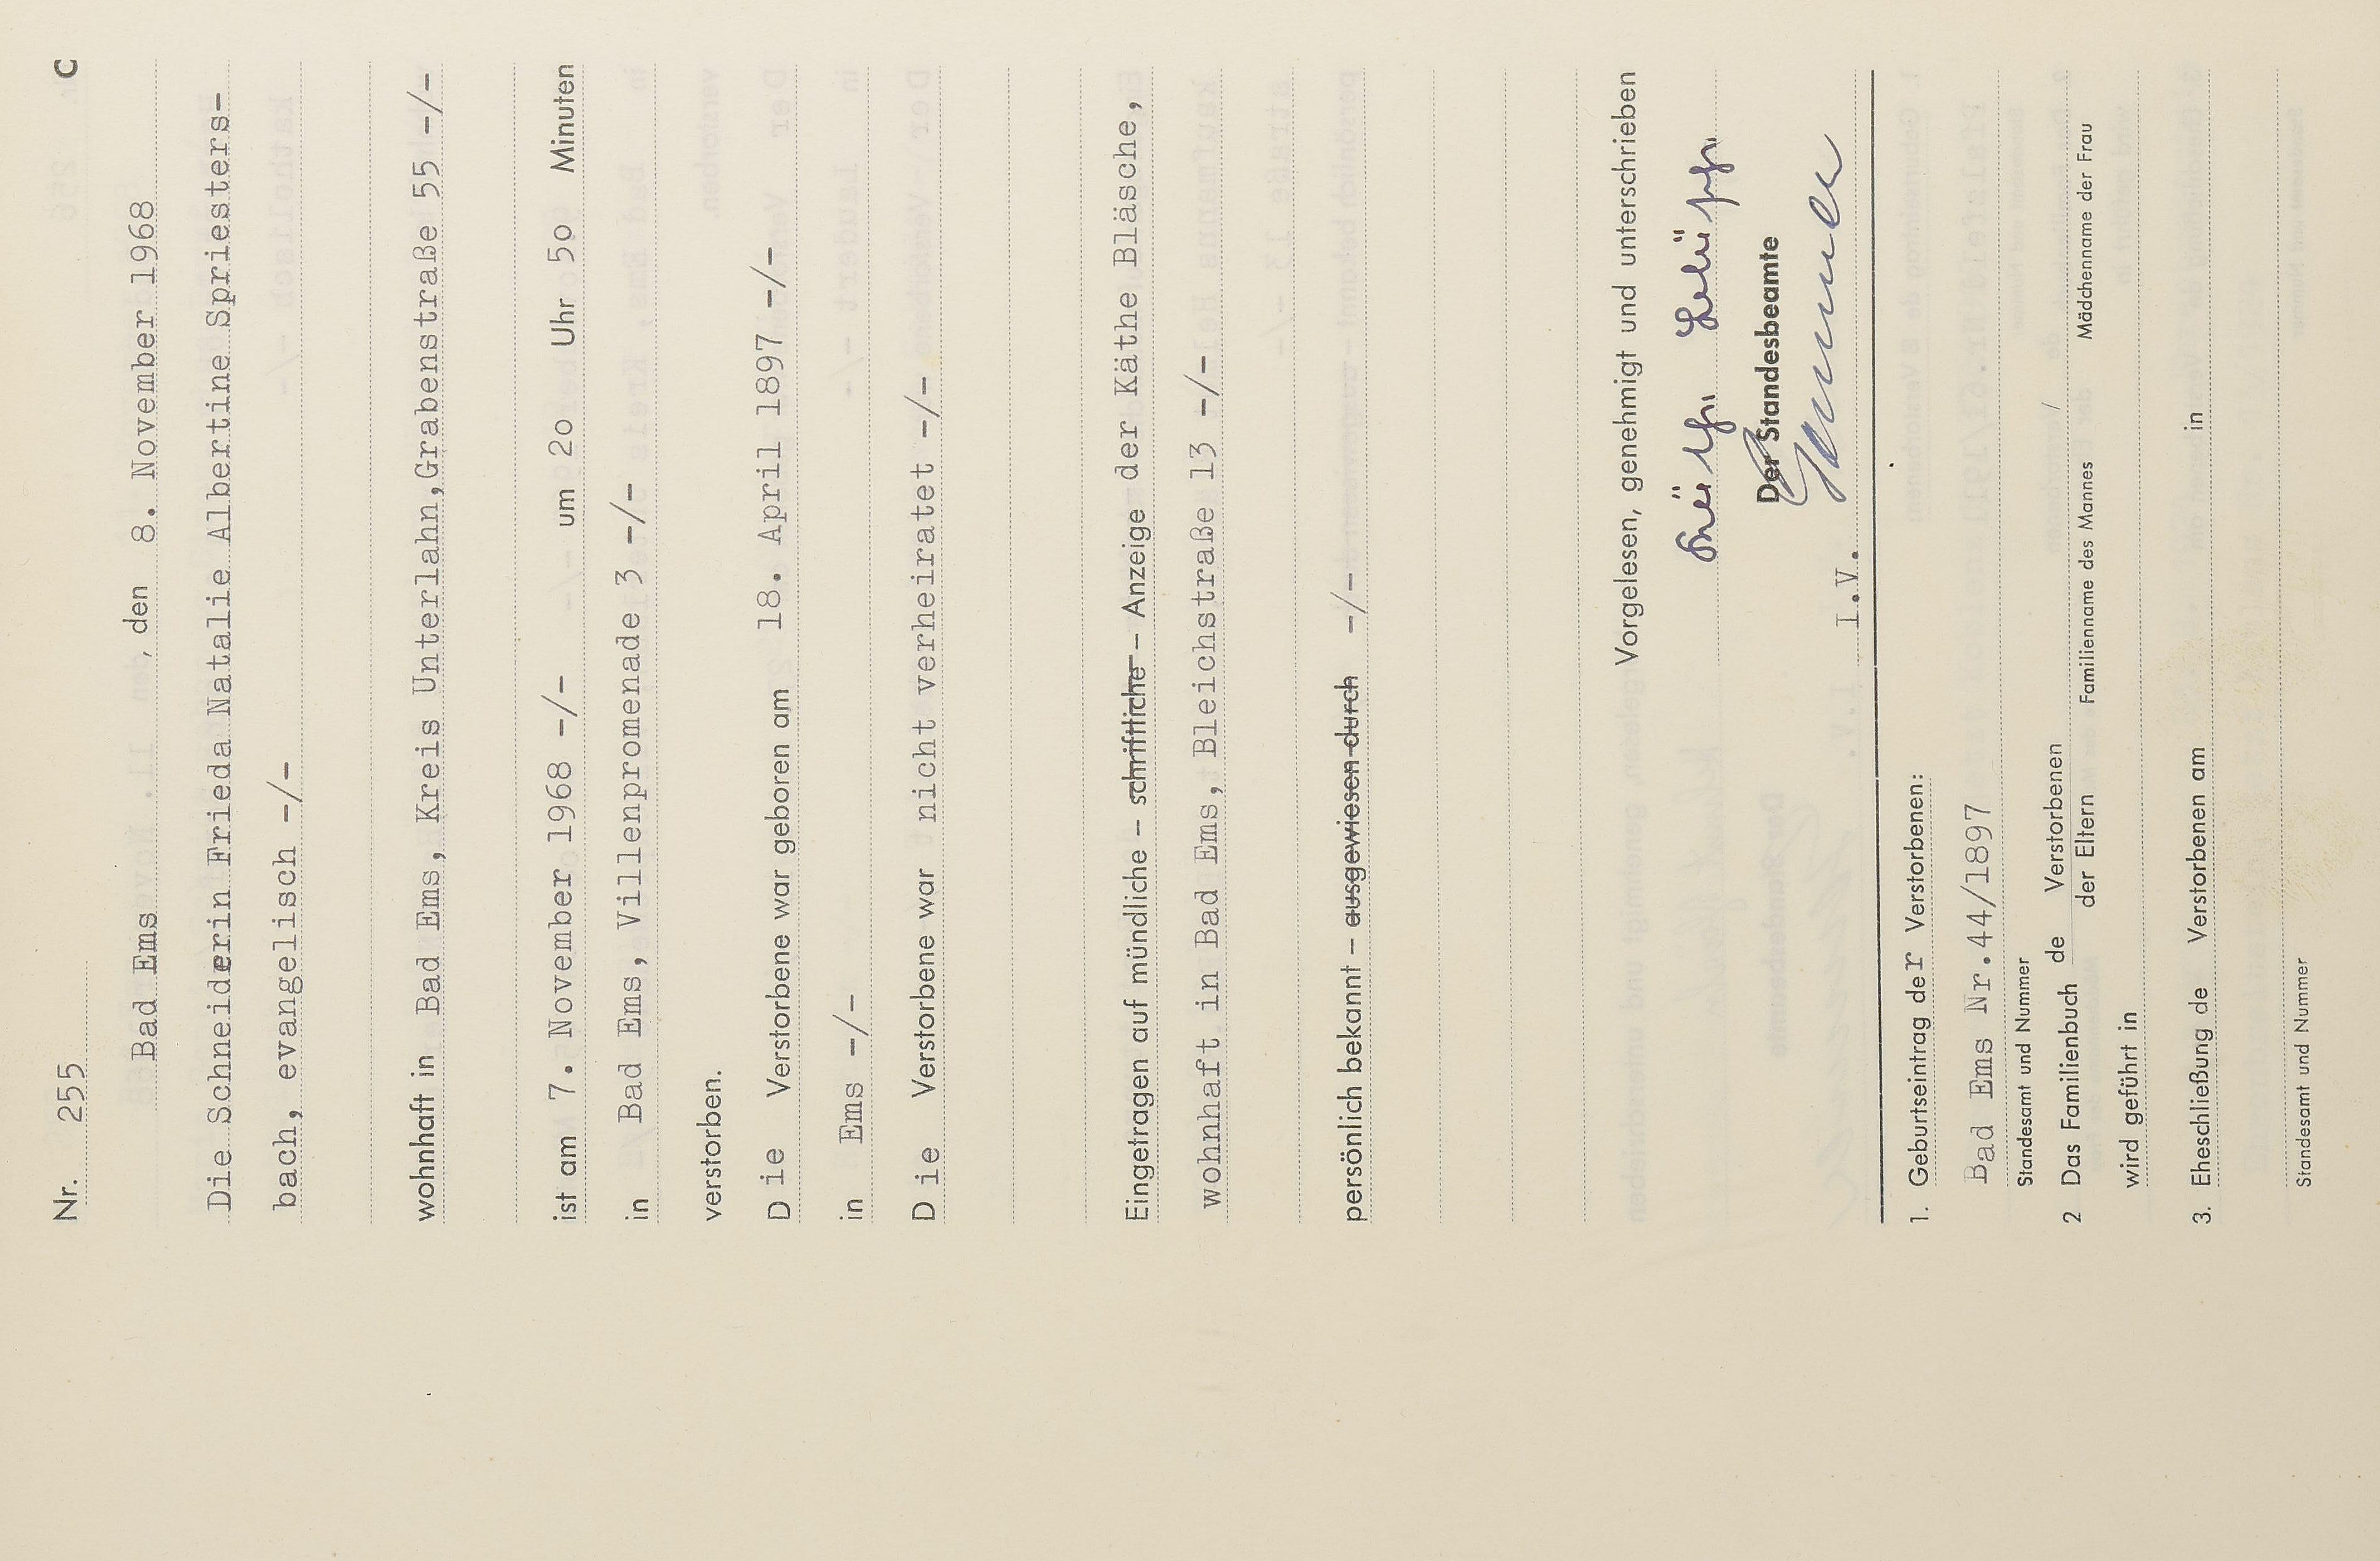 Nr. 255 C
Bad Ems, den 8. November 1968
Die Schneiderin Frieda Natalie Albertine Spriesters-
bach, evangelisch -/-
wohnhaft in Bad Ems, Kreis Unterlahn, Grabenstraße 55 -/-
ist am 7. November 1968 -/- um 20 Uhr 50 Minuten
in Bad Ems, Villenpromenade 3 -/-
verstorben.
Die Verstorbene war geboren am 18. April 1897 -/-
in Ems -/-
Die Verstorbene war nicht verheiratet -/-
Eingetragen auf mündliche - schriftliche - Anzeige der Käthe Bläsche,
wohnhaft in Bad Ems, Bleichstraße 13 -/-
persönlich bekannt - ausgewiesen durch -/-
Vorgelesen, genehmigt und unterschrieben
Der Standesbeamte
I.V.
1. Geburtseintrag der Verstorbenen:
Bad Ems Nr.44/1897
Standesamt und Nummer
2 Das Familienbuch de Verstorbenen /
der Eltern Familienname des Mannes Mädchenname der Frau
wird geführt in
3. Eheschließung de Verstorbenen am in
Standesamt und Nummer